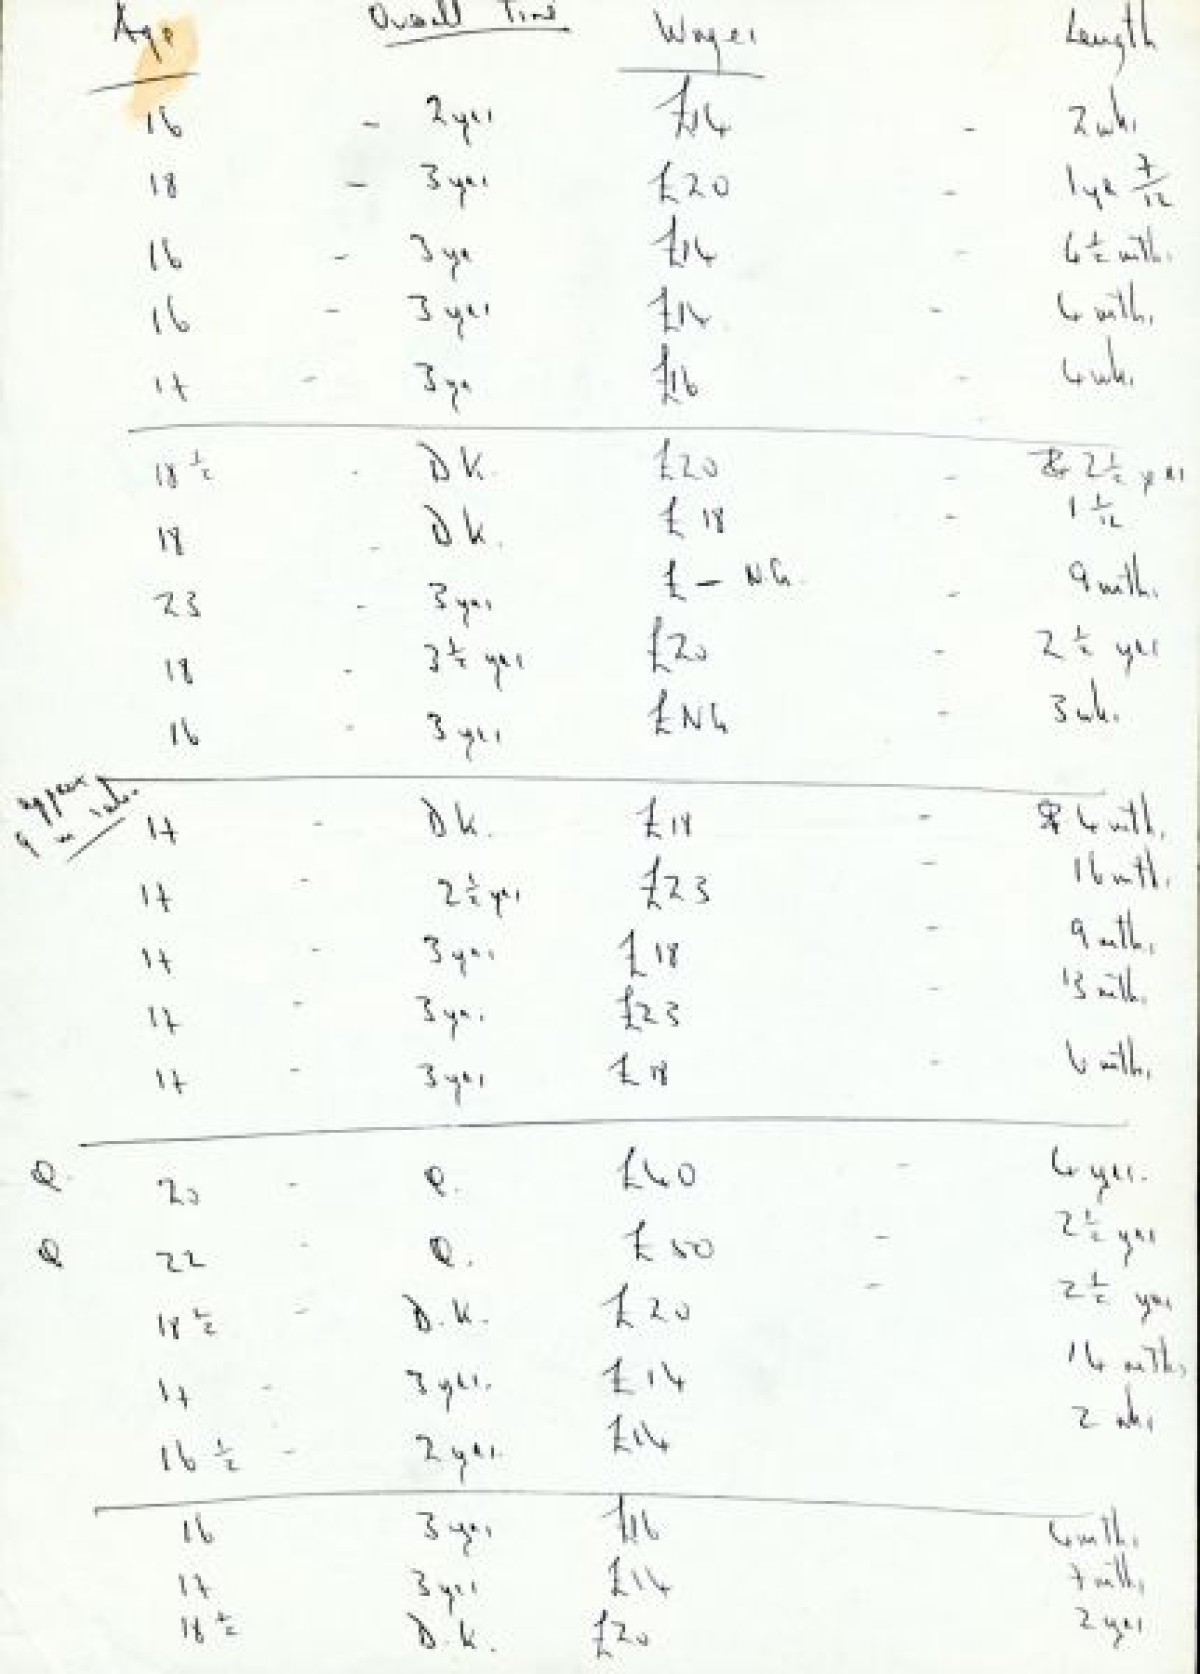 Age Overall Time Wages Length
16 - 2 yrs £14 - 2 wks
18 - 3 yrs £20 - 1 yr 7/12
16 - 3 yrs £14 - 4 1/2 mths
16 - 3 yrs £14 - 4 mths
17 - 3 yrs £16 - 4 wks
18 1/2 - DK. £20 - 2 1/2 yrs
18 - DK. £18 - 1 1/12
23 - 3 yrs £ - N.G. - 9 mths
18 - 3 1/2 yrs £20 - 2 1/2 yrs
16 - 3 yrs £NG - 3 wks
17 - DK. £18 - 4 mths
17 - 2 1/2 yrs £23 - 16 mths
17 - 3 yrs £18 - 9 mths
17 - 3 yrs £23 - 13 mths
17 - 3 yrs £18 - 6 mths
Q. 20 - Q. £40 - 4 yrs.
Q 22 - Q. £50 - 2 1/2 yrs
18 1/2 - D.K. £20 - 2 1/2 yrs
17 - 3 yrs. £14 14 mths
16 1/2 - 2 yrs. £14 2 wks
16 3 yrs £16 4 mths
17 3 yrs £14 7 mths
18 1/2 D.K. £20 2 yrs